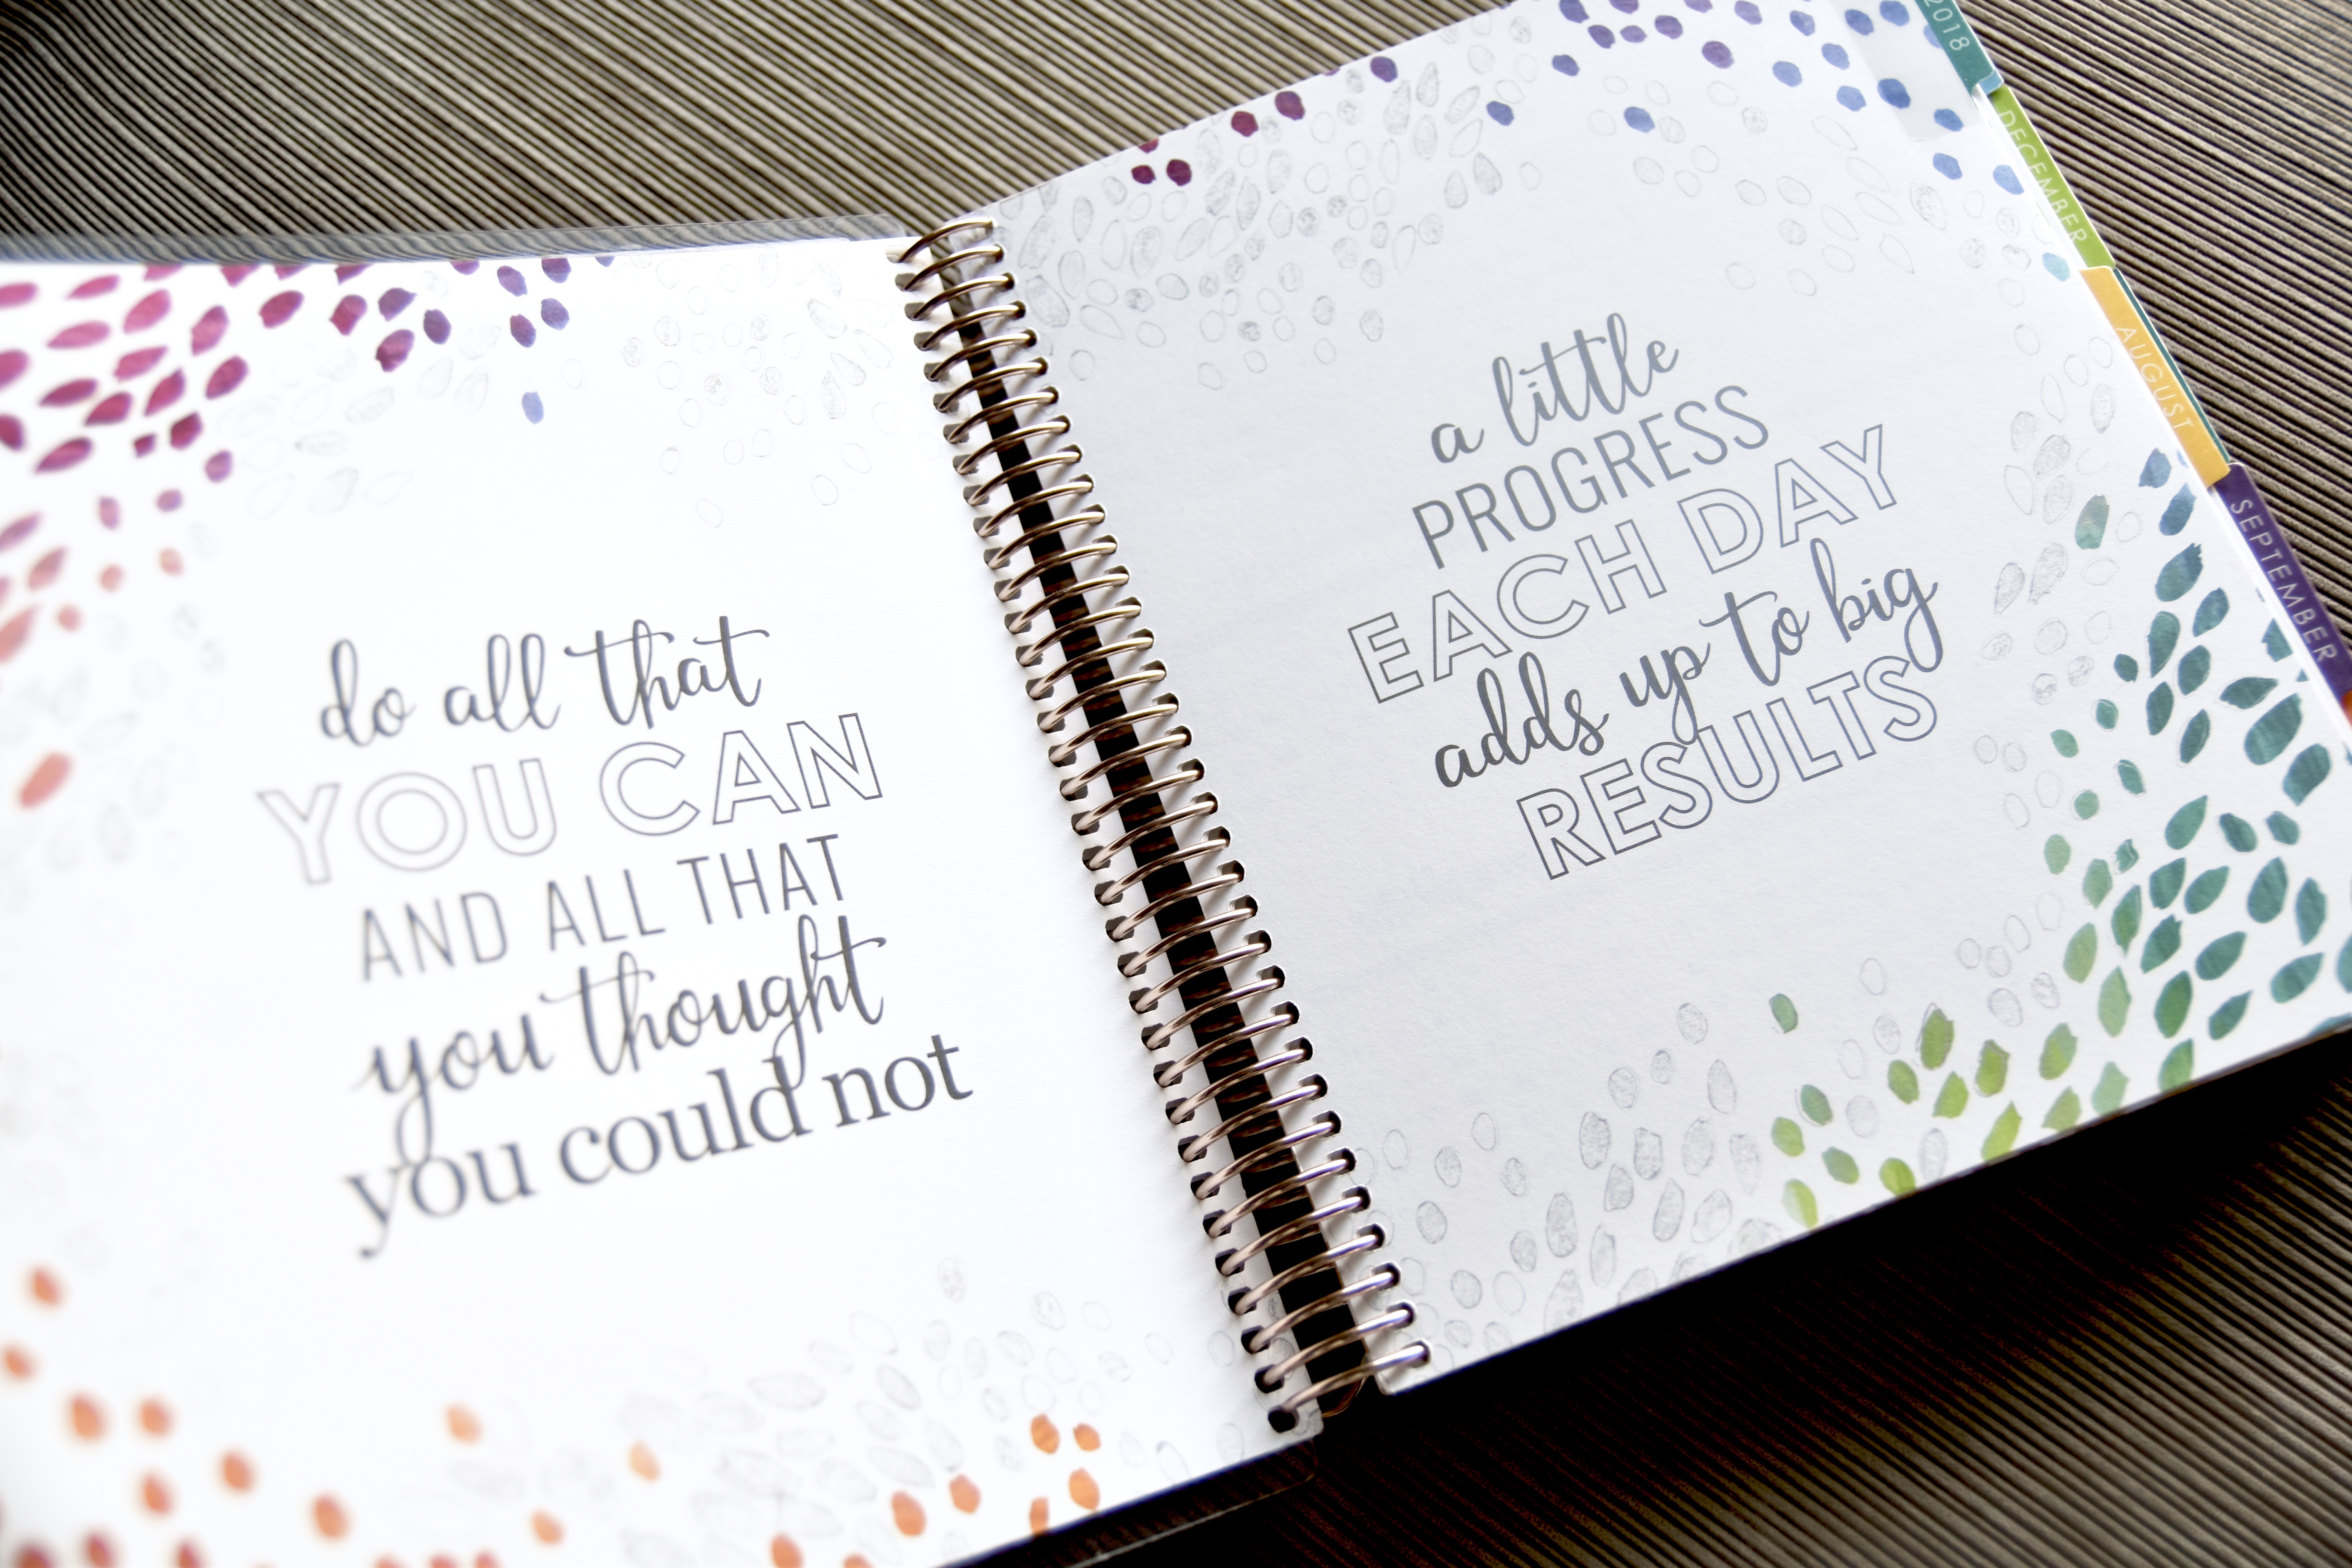 do all that
YOU CAN
AND ALL THAT
you thought
you could not
a little
PROGRESS
EACH DAY
adds up to big
RESULTS
2018
DECEMBER
AUGUST
SEPTEMBER